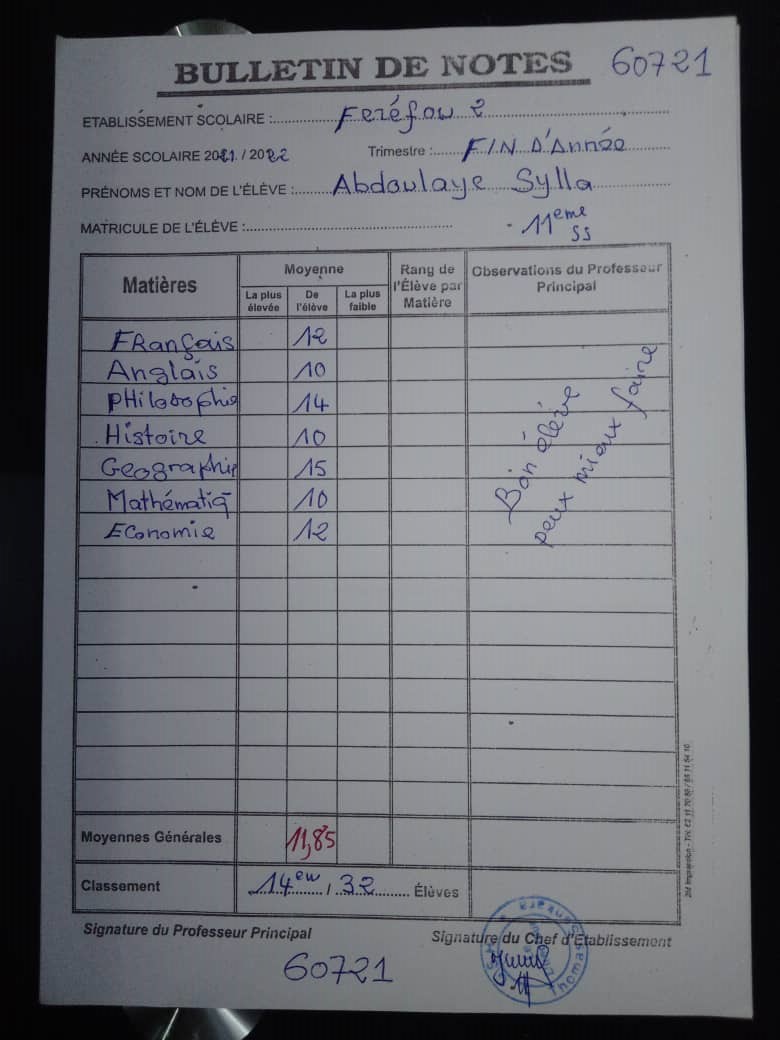 BULLETIN DE NOTES 60721
ETABLISSEMENT SCOLAIRE : Feréfou 2
ANNÉE SCOLAIRE 2021 / 2022 Trimestre : FIN D'Année
PRÉNOMS ET NOM DE L'ÉLÈVE : Abdoulaye Sylla
MATRICULE DE L'ÉLÈVE : 11eme
SS
Matières Moyenne Rang de l'Élève par Matière Observations du Professeur Principal
La plus élevée De l'élève La plus faible
FRançais 12
Anglais 10
PHilosophie 14
Histoire 10
Geographie 15
Mathématiq 10
Economie 12
Bon élève
peux mieux faire
Moyennes Générales 11,85
Classement 14em / 32 Élèves
Signature du Professeur Principal Signature du Chef d'Etablissement
60721
Thomas